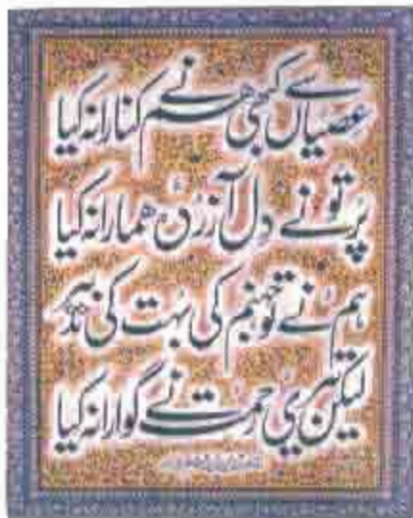 عصیاں سے کبھی ہم نے کنارا نہ کیا
پر تو نے دل آزردہ ہمارا نہ کیا
ہم نے تو جہنم کی بہت کی تدبیر
لیکن تیری رحمت نے گوارا نہ کیا